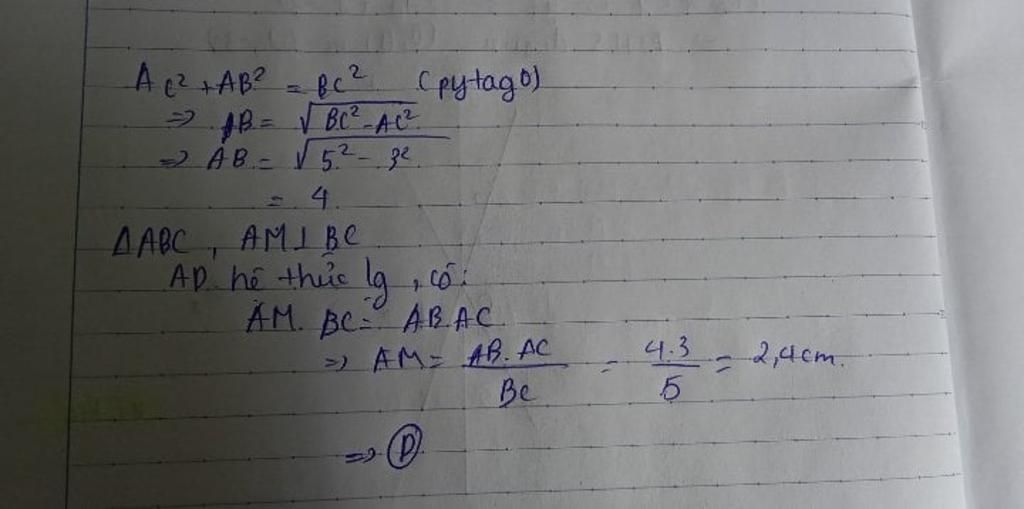 AC² + AB² = BC² (pytago)
=> AB = √BC² - AC²
=> AB = √5² - 3²
= 4.
ΔABC, AM ⊥ BC
AD hê thức lg, có:
AM. BC = AB.AC
=> AM = AB.AC/BC = 4.3/5 = 2,4cm.
=> D